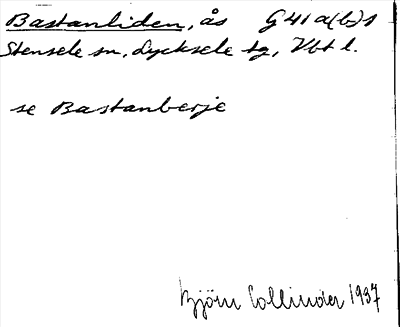 Bastanliden, ås G 41 a(b)1
Stensele sn, Lycksele tg, Vbt l.
se Bastanberje
Björn Collinder 1937